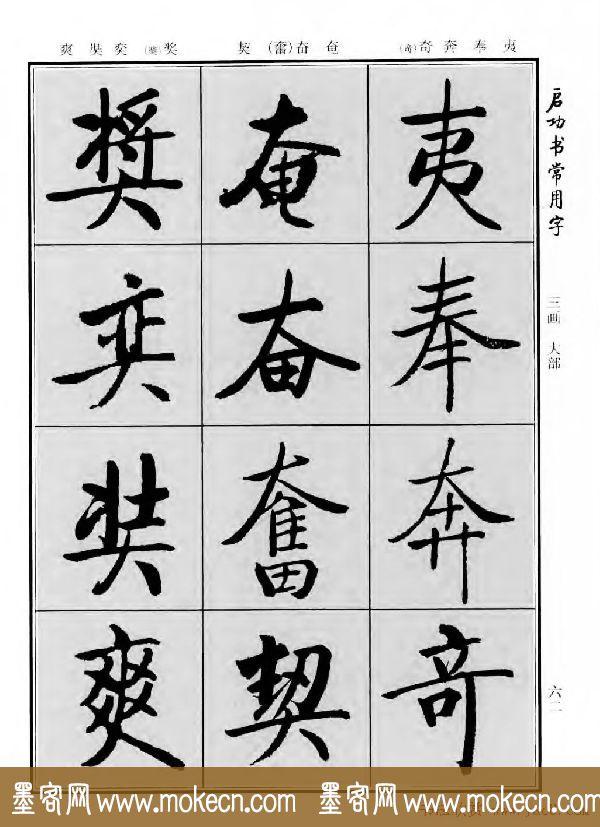 启功书常用字
三画 大部
六二
夷 奉 奔 奇(竒)
奄 奋(奮) 契
奖(奬) 奕 奘 爽
夷
奉
奔
竒
奄
奋
奮
契
奬
奕
奘
爽
墨客网 www.mokecn.com 墨客网 www.mokecn.com